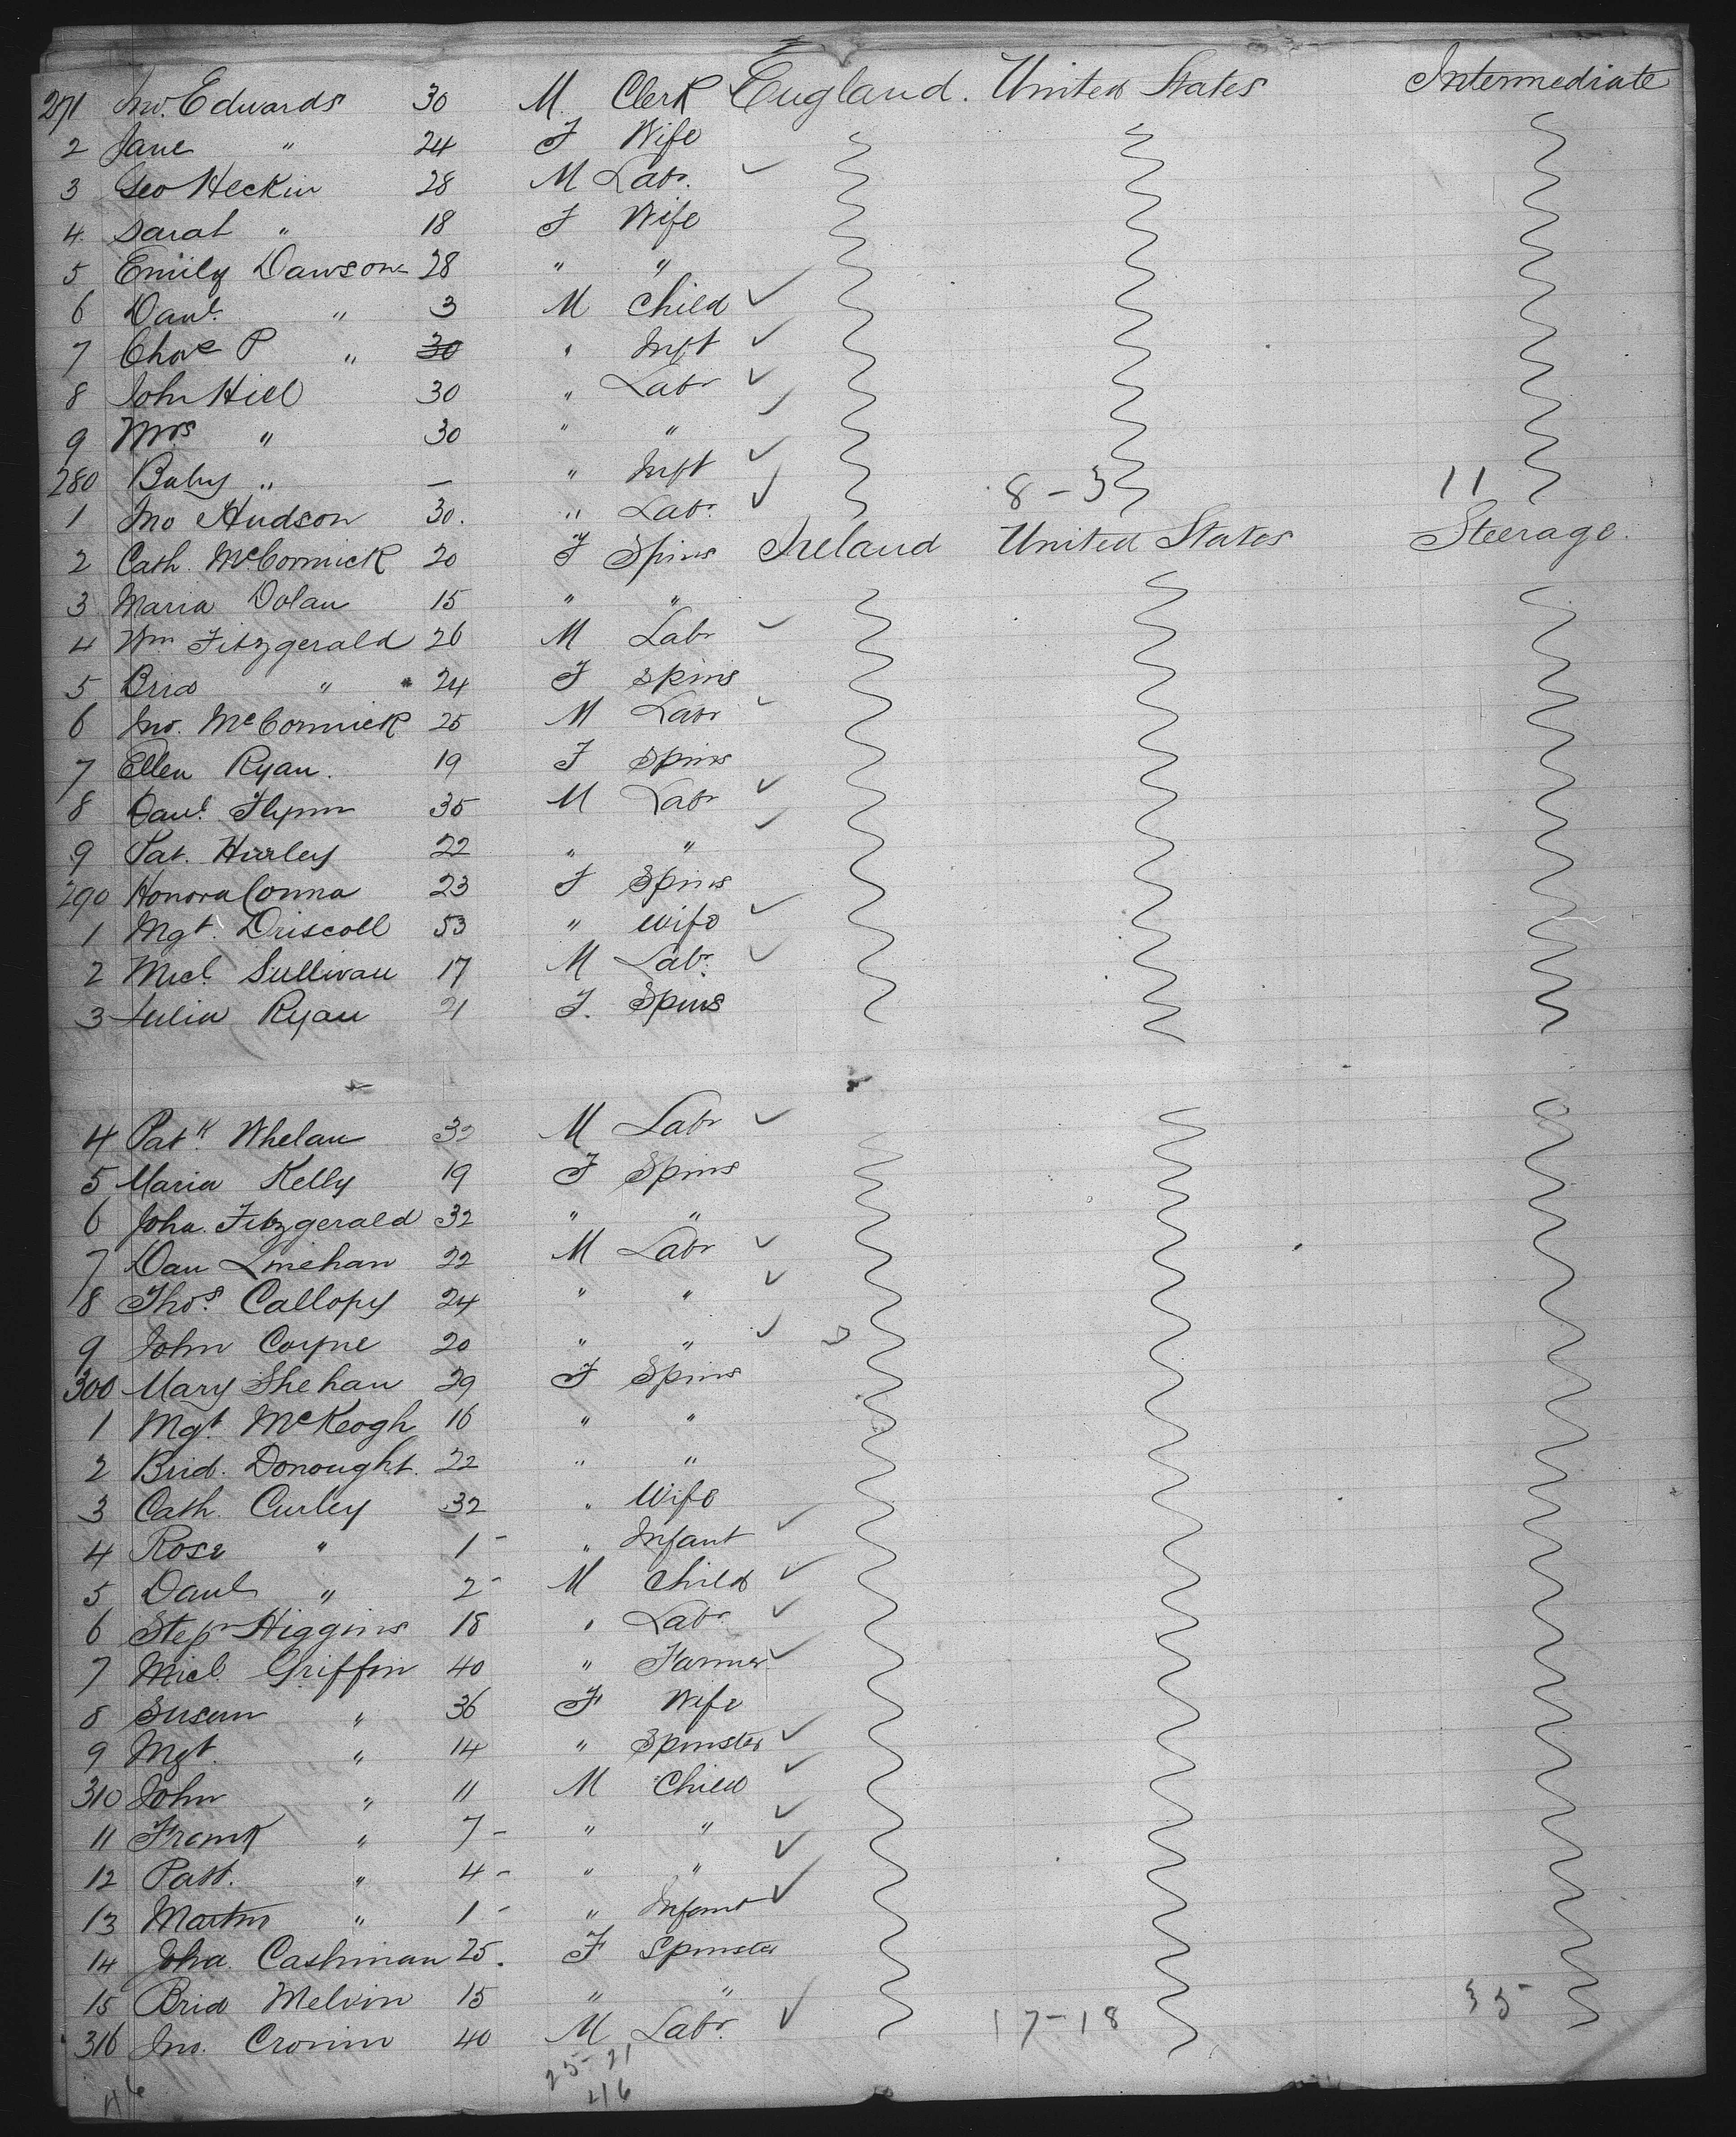 271 Jno. Edwards 30 M. Clerk England. United States Intermediate
2 Jane " 24 F Wife
3 Geo Heckin 28 M Labr.
4. Sarah " 18 F Wife
5 Emily Dawson 28 " "
6 Danl. " 3 M Child
7 Chas P " 30 " Inft
8 John Hill 30 " Labr
9 Mrs " 30 " "
280 Baby " — " Inft 8-3 11
1 Jno Hudson 30. " Labr.
2 Cath. McCormick 20 F Spins Ireland United States Steerage.
3 Maria Dolan 15 " "
4 Wm Fitzgerald 26 M Labr
5 Brid " 24 F Spins
6 Jno. McCormick 25 M Labr
7 Ellen Ryan. 19 F Spins
8 Danl. Flynn 35 M Labr
9 Pat. Hurley 22 " "
290 Honora Conna 23 F Spins
1 Mgt. Driscoll 53 " Wife
2 Micl. Sullivan 17 M Labr.
3 Julia Ryan 21 F. Spins
4 Patk Whelan M Labr
5 Maria Kelly 19 F Spins
6 Joha. Fitzgerald 32 " "
7 Dan Linehan 22 M Labr
8 Thos. Callopy 24 " "
9 John Coyne 20 " "
300 Mary Shehan 29 F Spins
1 Mgt. McKeogh 16 " "
2 Brid. Donought. 22 " "
3 Cath. Curley 32 " Wife
4 Rose " 1- " Infant
5 Danl " 2- M Child
6 Step Higgins 18 " Labr.
7 Micl. Griffin 40 " Farmer
8 Susan " 36 F Wife
9 Mgt. " 14 " Spinster
310 John " 11 M Child
11 Frank " 7- " "
12 Patt. " 4- " "
13 Martin " 1- " Infant
14 Joha. Cashman 25. F Spinster
15 Brid Melvin 15 " "
316 Jno. Cronin 40 M Labr. 17-18 35
25-21
46 46